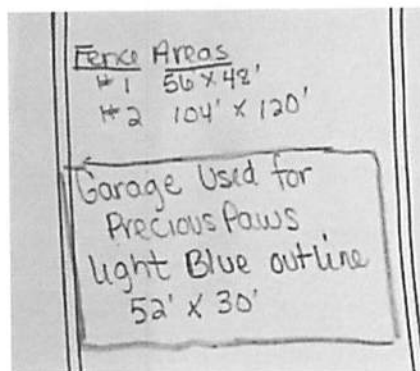 Fence Areas
#1 56 x 48'
#2 104' x 120'
Garage Used for
Precious Paws
light Blue outline
52' x 30'